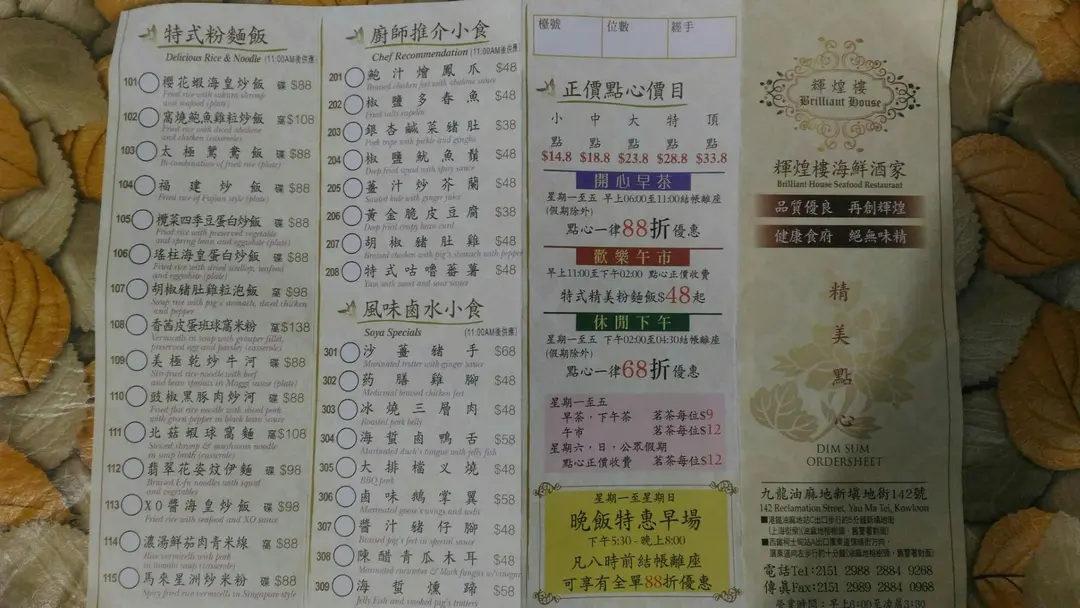 特式粉麵飯
Delicious Rice & Noodle (11:00AM後供應)
101 櫻花蝦海皇炒飯 碟 $88
Fried rice with sakura shrimp
and seafood (plate)
102 窩燒鮑魚雞粒炒飯 窩 $108
Fried rice with diced abalone
and chicken (casserole)
103 太極鴛鴦飯 碟 $88
Bi-combination of fried rice (plate)
104 福建炒飯 碟 $88
Fried rice of Fujian style (plate)
105 欖菜四季豆蛋白炒飯 碟 $88
Fried rice with preserved vegetable
and spring bean and eggwhite (plate)
106 瑤柱海皇蛋白炒飯 碟 $88
Fried rice with dried scallop, seafood
and eggwhite (plate)
107 胡椒豬肚雞粒泡飯 窩 $98
Soup rice with pig's stomach, diced chicken
and pepper
108 香茜皮蛋班球窩米粉 窩 $138
Vermicelli in soup with grouper fillet,
preserved egg and parsley (casserole)
109 美極乾炒牛河 碟 $88
Stir-fried rice noodle with beef
and bean sprouts in Maggi sauce (plate)
110 豉椒黑豚肉炒河 碟 $88
Fried flat rice noodle with sliced pork
with green pepper in black bean sauce
111 北菇蝦球窩麵 窩 $108
Stewed shrimp & mushroom noodle
in soup broth (casserole)
112 翡翠花姿炆伊麵 碟 $98
Braised E-fu noodles with squid
and vegetables
113 XO醬海皇炒飯 碟 $98
Fried rice with seafood and XO sauce
114 濃湯鮮茄肉青米線 窩 $88
Rice vermicelli with pork
in tomato soup (casserole)
115 馬來星洲炒米粉 碟 $88
Spicy fried rice vermicelli in Singapore style
廚師推介小食
Chef Recommendation (11:00AM後供應)
201 鮑汁燴鳳爪 $48
Braised chicken feet with abalone sauce
202 椒鹽多春魚 $48
Fried salty capelin
203 銀杏鹹菜豬肚 $38
Pork tripe with pickle and gingko
204 椒鹽魷魚鬚 $48
Deep fried squid with spicy sauce
205 薑汁炒芥蘭 $48
Sauted kale with ginger juice
206 黃金脆皮豆腐 $38
Deep fried crispy bean curd
207 胡椒豬肚雞 $48
Braised chicken with pig's stomach with pepper
208 特式咕嚕蕃薯 $48
Yam with sweet and sour sauce
風味鹵水小食
Soya Specials (11:00AM後供應)
301 沙薑豬手 $68
Marinated trotter with ginger sauce
302 藥膳雞腳 $48
Medicated braised chicken feet
303 冰燒三層肉 $48
Roasted pork belly
304 海蜇鹵鴨舌 $58
Marinated duck's tongue with jelly fish
305 大排檔叉燒 $48
BBQ pork
306 鹵味鵝掌翼 $58
Marinated goose's wings and webs
307 醬汁豬仔腳 $48
Braised pig's feet in special sauce
308 陳醋青瓜木耳 $48
Marinated cucumber & black fungus w/vinegar
309 海蜇燻蹄 $58
Jelly Fish and smoked pig's trotters
檯號
位數
經手
正價點心價目
小點 中點 大點 特點 頂點
$14.8 $18.8 $23.8 $28.8 $33.8
開心早茶
星期一至五 早上06:00至11:00結帳離座
(假期除外)
點心一律88折優惠
歡樂午市
早上11:00至下午02:00 點心正價收費
特式精美粉麵飯$48起
休閒下午
星期一至五 下午02:00至04:30結帳離座
(假期除外)
點心一律68折優惠
星期一至五
早茶，下午茶 茗茶每位$9
午市 茗茶每位$12
星期六，日，公眾假期
點心正價收費 茗茶每位$12
星期一至星期日
晚飯特惠早場
下午5:30 - 晚上8:00
凡八時前結帳離座
可享有全單88折優惠
輝煌樓
Brilliant House
輝煌樓海鮮酒家
Brilliant House Seafood Restaurant
品質優良 再創輝煌
健康食府 絕無味精
精美點心
DIM SUM
ORDERSHEET
九龍油麻地新填地街142號
142 Reclamation Street, Yau Ma Tei, Kowloon
■港鐵油麻地站C出口步行約5分鐘新填地街
電話Tel:2151 2988 2884 9268
傳真Fax:2151 2989 2884 0968